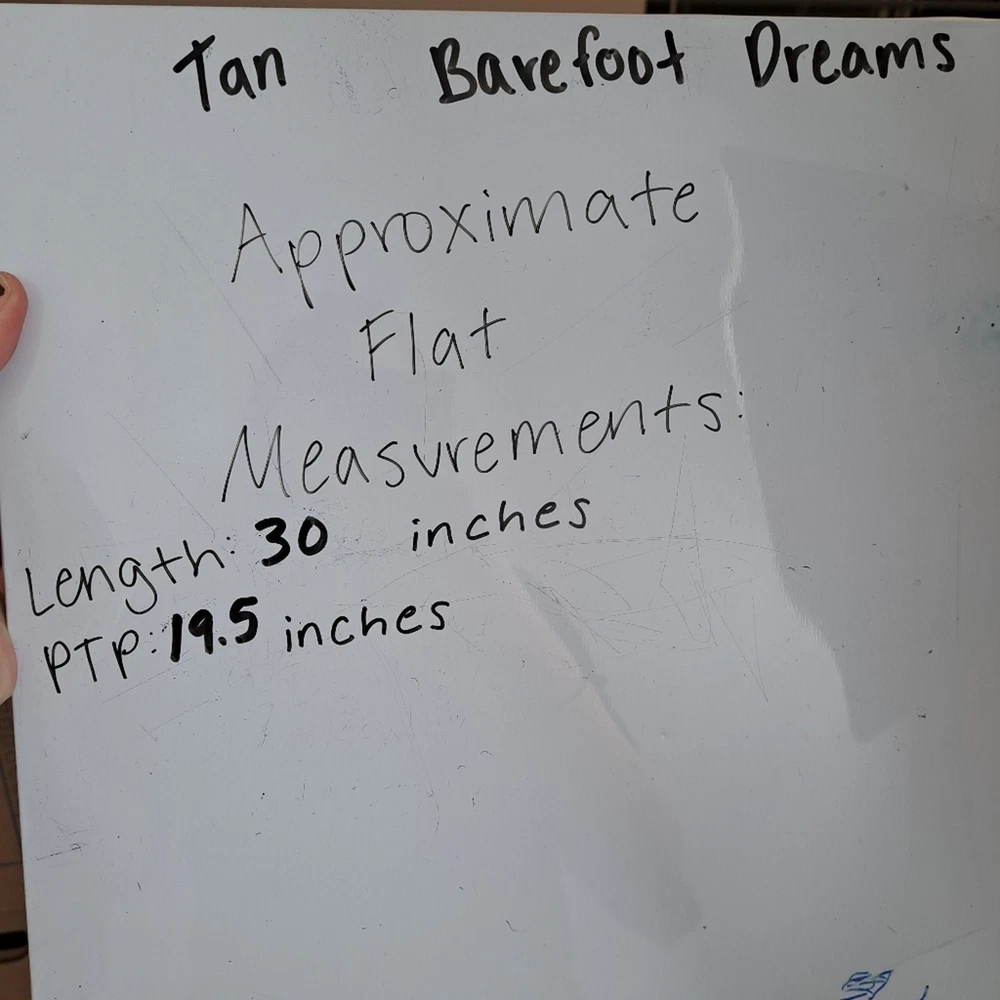 Tan Barefoot Dreams
Approximate
Flat
Measurements:
Length: 30 inches
PTP: 19.5 inches